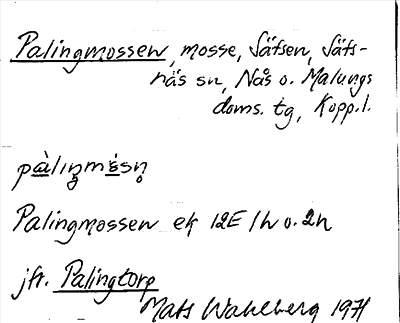 Palingmossen, mosse, Säfsen, Säfs-
näs sn, Nås o. Malungs
doms. tg, Kopp.l.
pàlıŋmɛ́sn̥
Palingmossen ek 12E 1h o. 2h
jfr. Palingtorp
Mats Wahlberg 1971